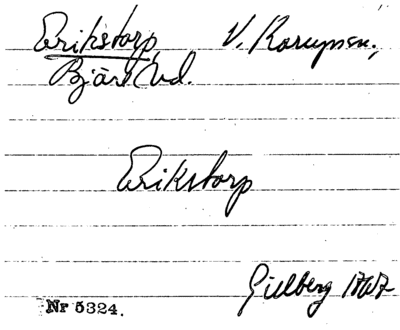 Erikstorp, V. Karups sn.,
Bjäre hd.
Erikstorp
Gillberg 1767
Nr 5324.